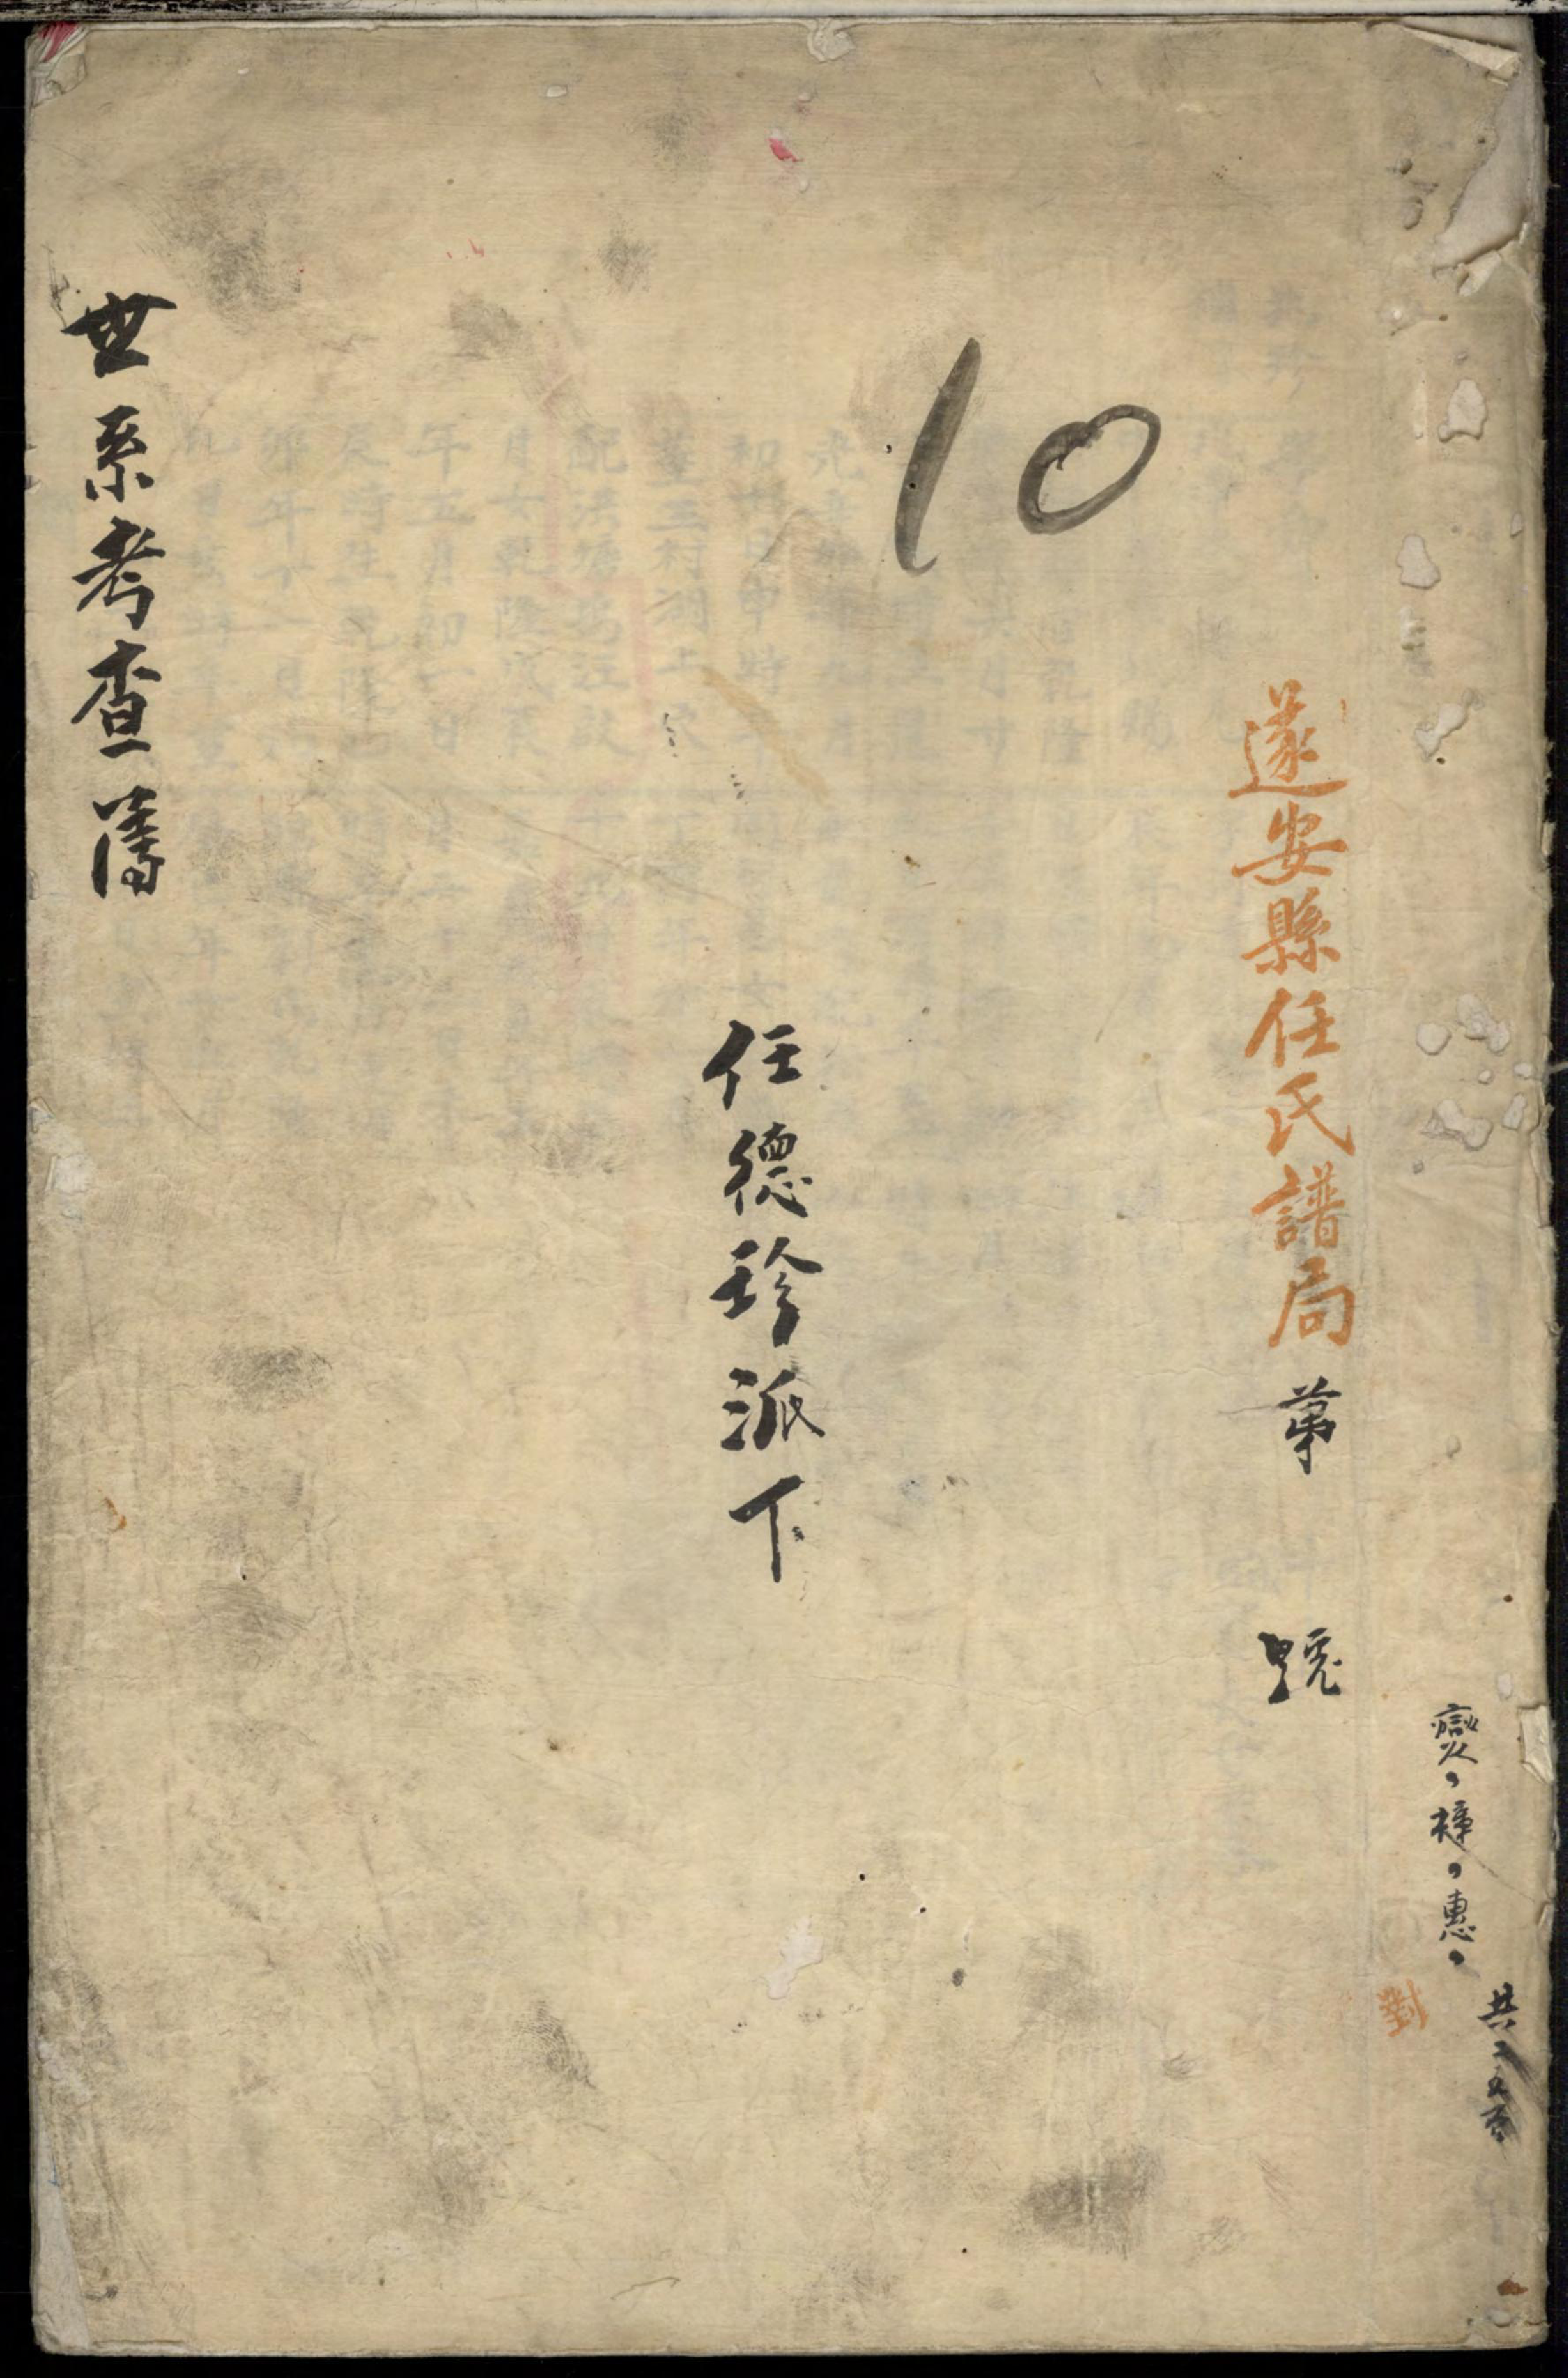 共
燮、樟、惠、
對
遂安縣任氏譜局第 號
10
任德珍派下
世系考查簿